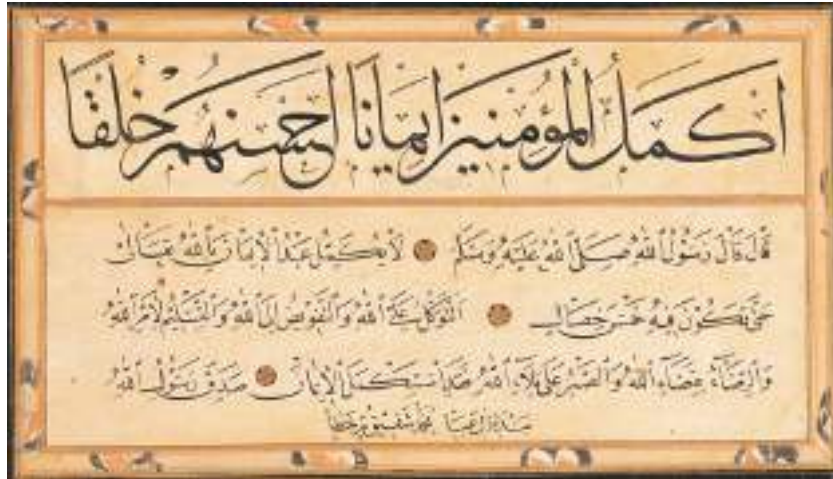 اكمل المؤمنين ايمانا احسنهم خلقا
قَالَ قَالَ رَسُولُ اللّٰهِ صَلَّى اللّٰهُ عَلَيْهِ وَسَلَّمَ لَا يُكْمِلُ عَبْدٌ الْاِيمَانَ بِاللّٰهِ
حَتّٰى يَكُونَ فِيهِ خَمْسُ خِصَالٍ اَلتَّوَكُّلُ عَلَى اللّٰهِ وَالتَّفْوِيضُ اِلَى اللّٰهِ وَالتَّسْلِيمُ لِاَمْرِ اللّٰهِ
وَالرِّضَاءُ بِقَضَاءِ اللّٰهِ وَالصَّبْرُ عَلَى بَلَاءِ اللّٰهِ الْاِيمَانَ صَدَقَ رَسُولُ اللّٰهِ